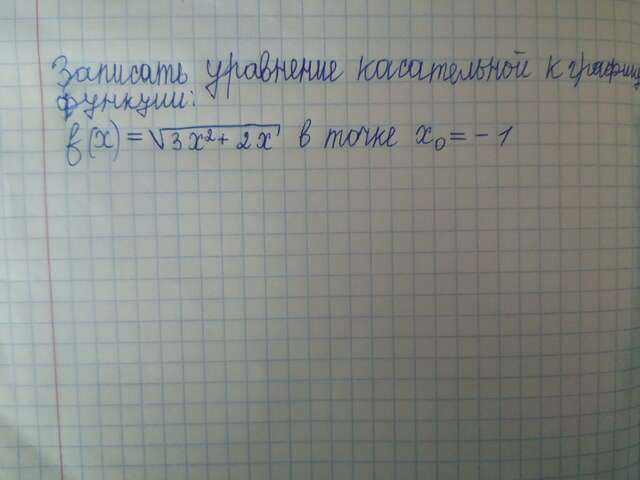 Записать уравнение касательной к
функции:
f(x) = √3x²+ 2x в точке x₀ = - 1